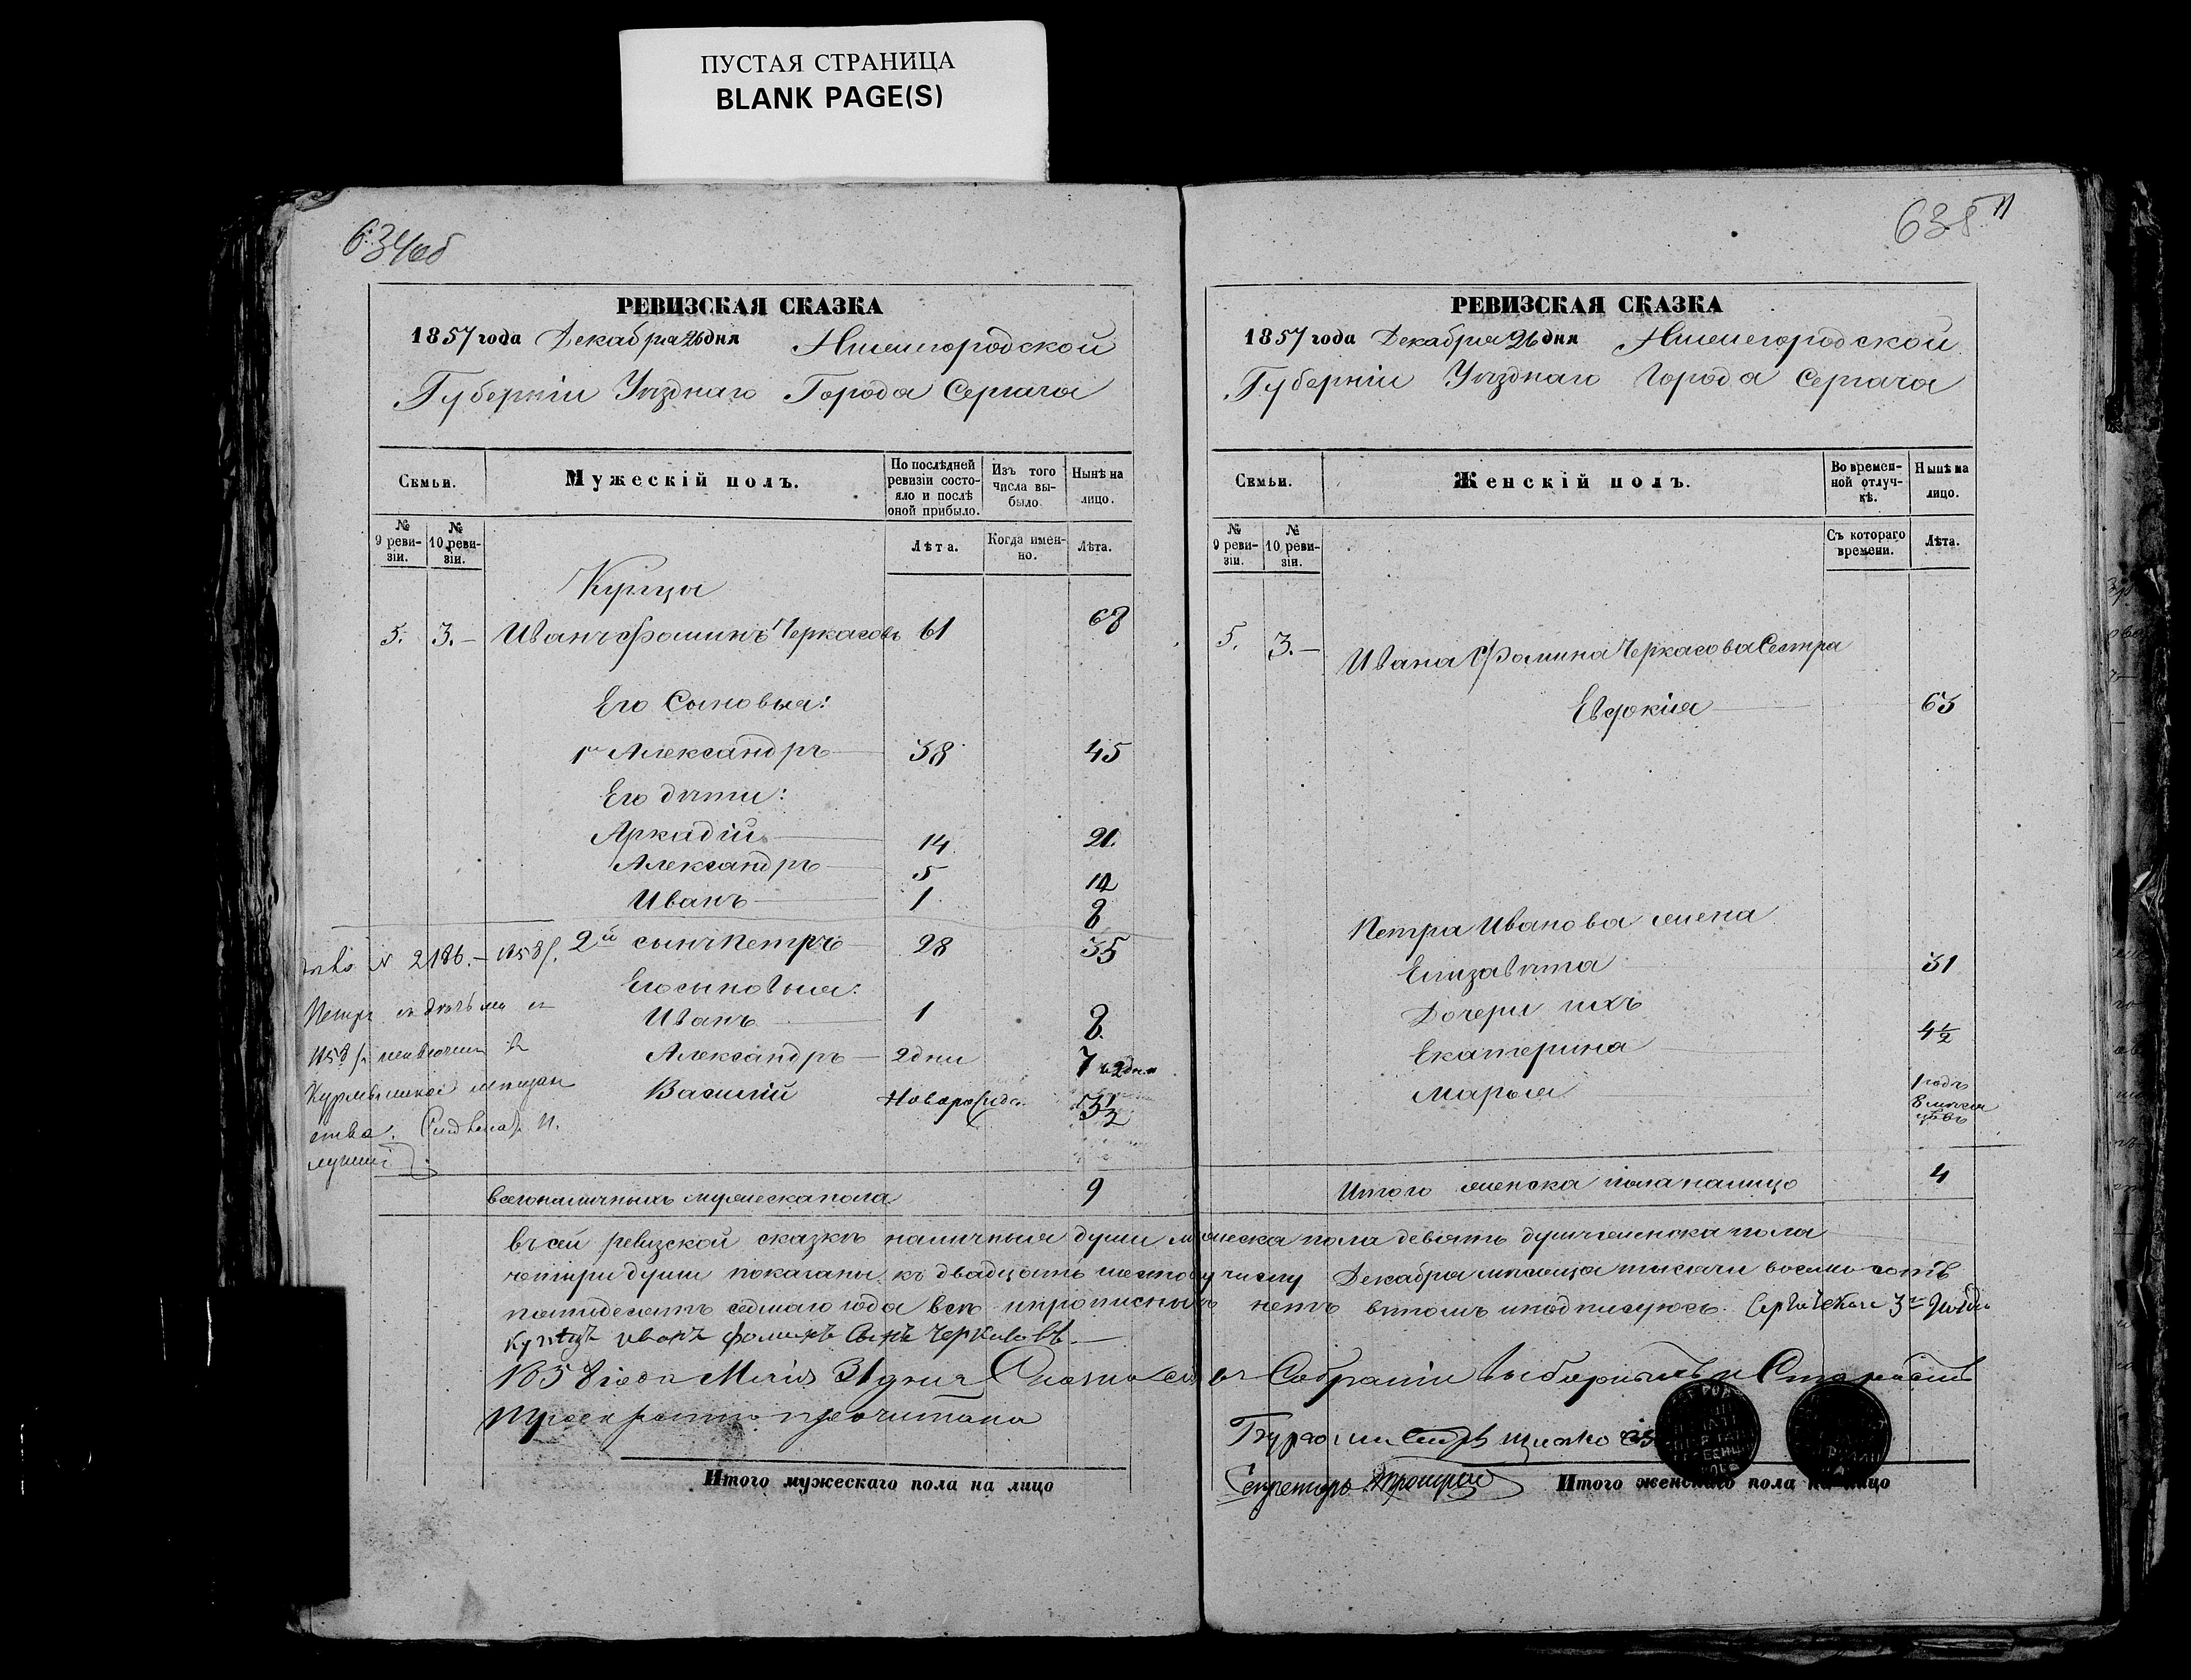 ПУСТАЯ СТРАНИЦА
BLANK PAGE(S)
634об
РЕВИЗСКАЯ СКАЗКА
1857 года Декабря 26 дня Нижегородской
Губерніи Уѣзднаго Города Сергача
Семьи.
Мужескій полъ.
По послѣдней ревизіи состояло и послѣ оной прибыло.
Изъ того числа выбыло.
Нынѣ на лицо.
№ 9 ревизіи.
№ 10 ревизіи.
Лѣта.
Когда именно.
Лѣта.
Купцы
5. 3.– Иванъ Фоминъ Черкасовъ 61 68
Его Сыновья:
1й Александръ 38 45
Его дѣти:
Аркадій 14 21
Александръ 5 12
Иванъ 1 8
2й сынъ Петръ 28 35
Его сыновья:
Иванъ 1 8.
Александръ 2 дни 7 и 2 дня
Василий Новорожд. 5½
№ 2186.– 1858 г.
Петръ съ дѣтьми съ
1858 г.
Курмышское мещан
ства.
всего наличныхъ мужеска пола 9
635
11
РЕВИЗСКАЯ СКАЗКА
1857 года Декабря 26 дня Нижегородской
Губерніи Уѣзднаго Города Сергача
Семьи.
Женскій полъ.
Во временной отлучкѣ.
Нынѣ на лицо.
№ 9 ревизіи.
№ 10 ревизіи.
Съ котораго времени.
Лѣта.
5. 3.– Ивана Фомина Черкасова Сестра
Евфокія 63
Петра Иванова жена
Елизавѣта 31
Дочери ихъ
Екатерина 4½
Марья 1 годъ 8 месяцевъ
Итого женска пола налицо 4
въ сей ревизской сказкѣ наличныя души мужеска пола девять душъ женска пола
четыри души показаны къ двадцать шестому числу Декабря мѣсяца тысячи восемь сотъ
пятидесятъ седмаго года всѣ и прописныхъ нетъ въ томъ и подписуюсь. Сергачской 3й Гилдіи
купецъ иванъ фоминъ Сынъ Черкасовъ
1858 года Маія 31 дня Сказка сія въ Собраніи выборныхъ и Старость
троекратно прочитана
Бургомистръ
Секретарь
Итого мужескаго пола на лицо
Итого женскаго пола на лицо